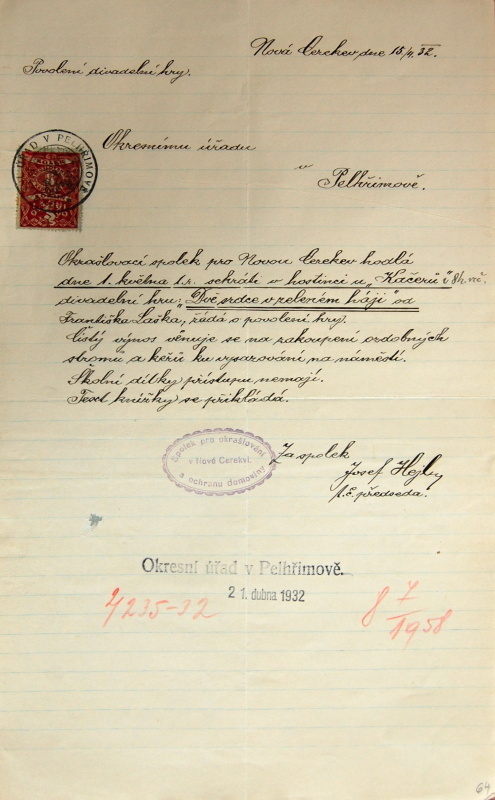 Nová Cerekev dne 15/4.32.
Povolení divadelní hry.
ÚŘAD V PELHŘIMOVĚ
Okresnímu úřadu
v
Pelhřimově.
Okrašlovací spolek pro Novou Cerekev hodlá
dne 1. května t.r. sehráti v hostinci u „Kačerů" v 8h. več.
divadelní hru: „Dvě srdce v zeleném háji" od
Františka Laška, žádá o povolení hry.
Čistý výnos věnuje se na zakoupení ozdobných
stromů a keřů ku vysazování na náměstí.
Školní dítky přístupu nemají.
Text knížky se přikládá.
Spolek pro okrašlování
v Nové Cerekvi.
a ochranu domoviny
Za spolek
Josef Hejly
t.č. předseda.
Okresní úřad v Pelhřimově.
21. dubna 1932
4235-32
8 7/1958
64